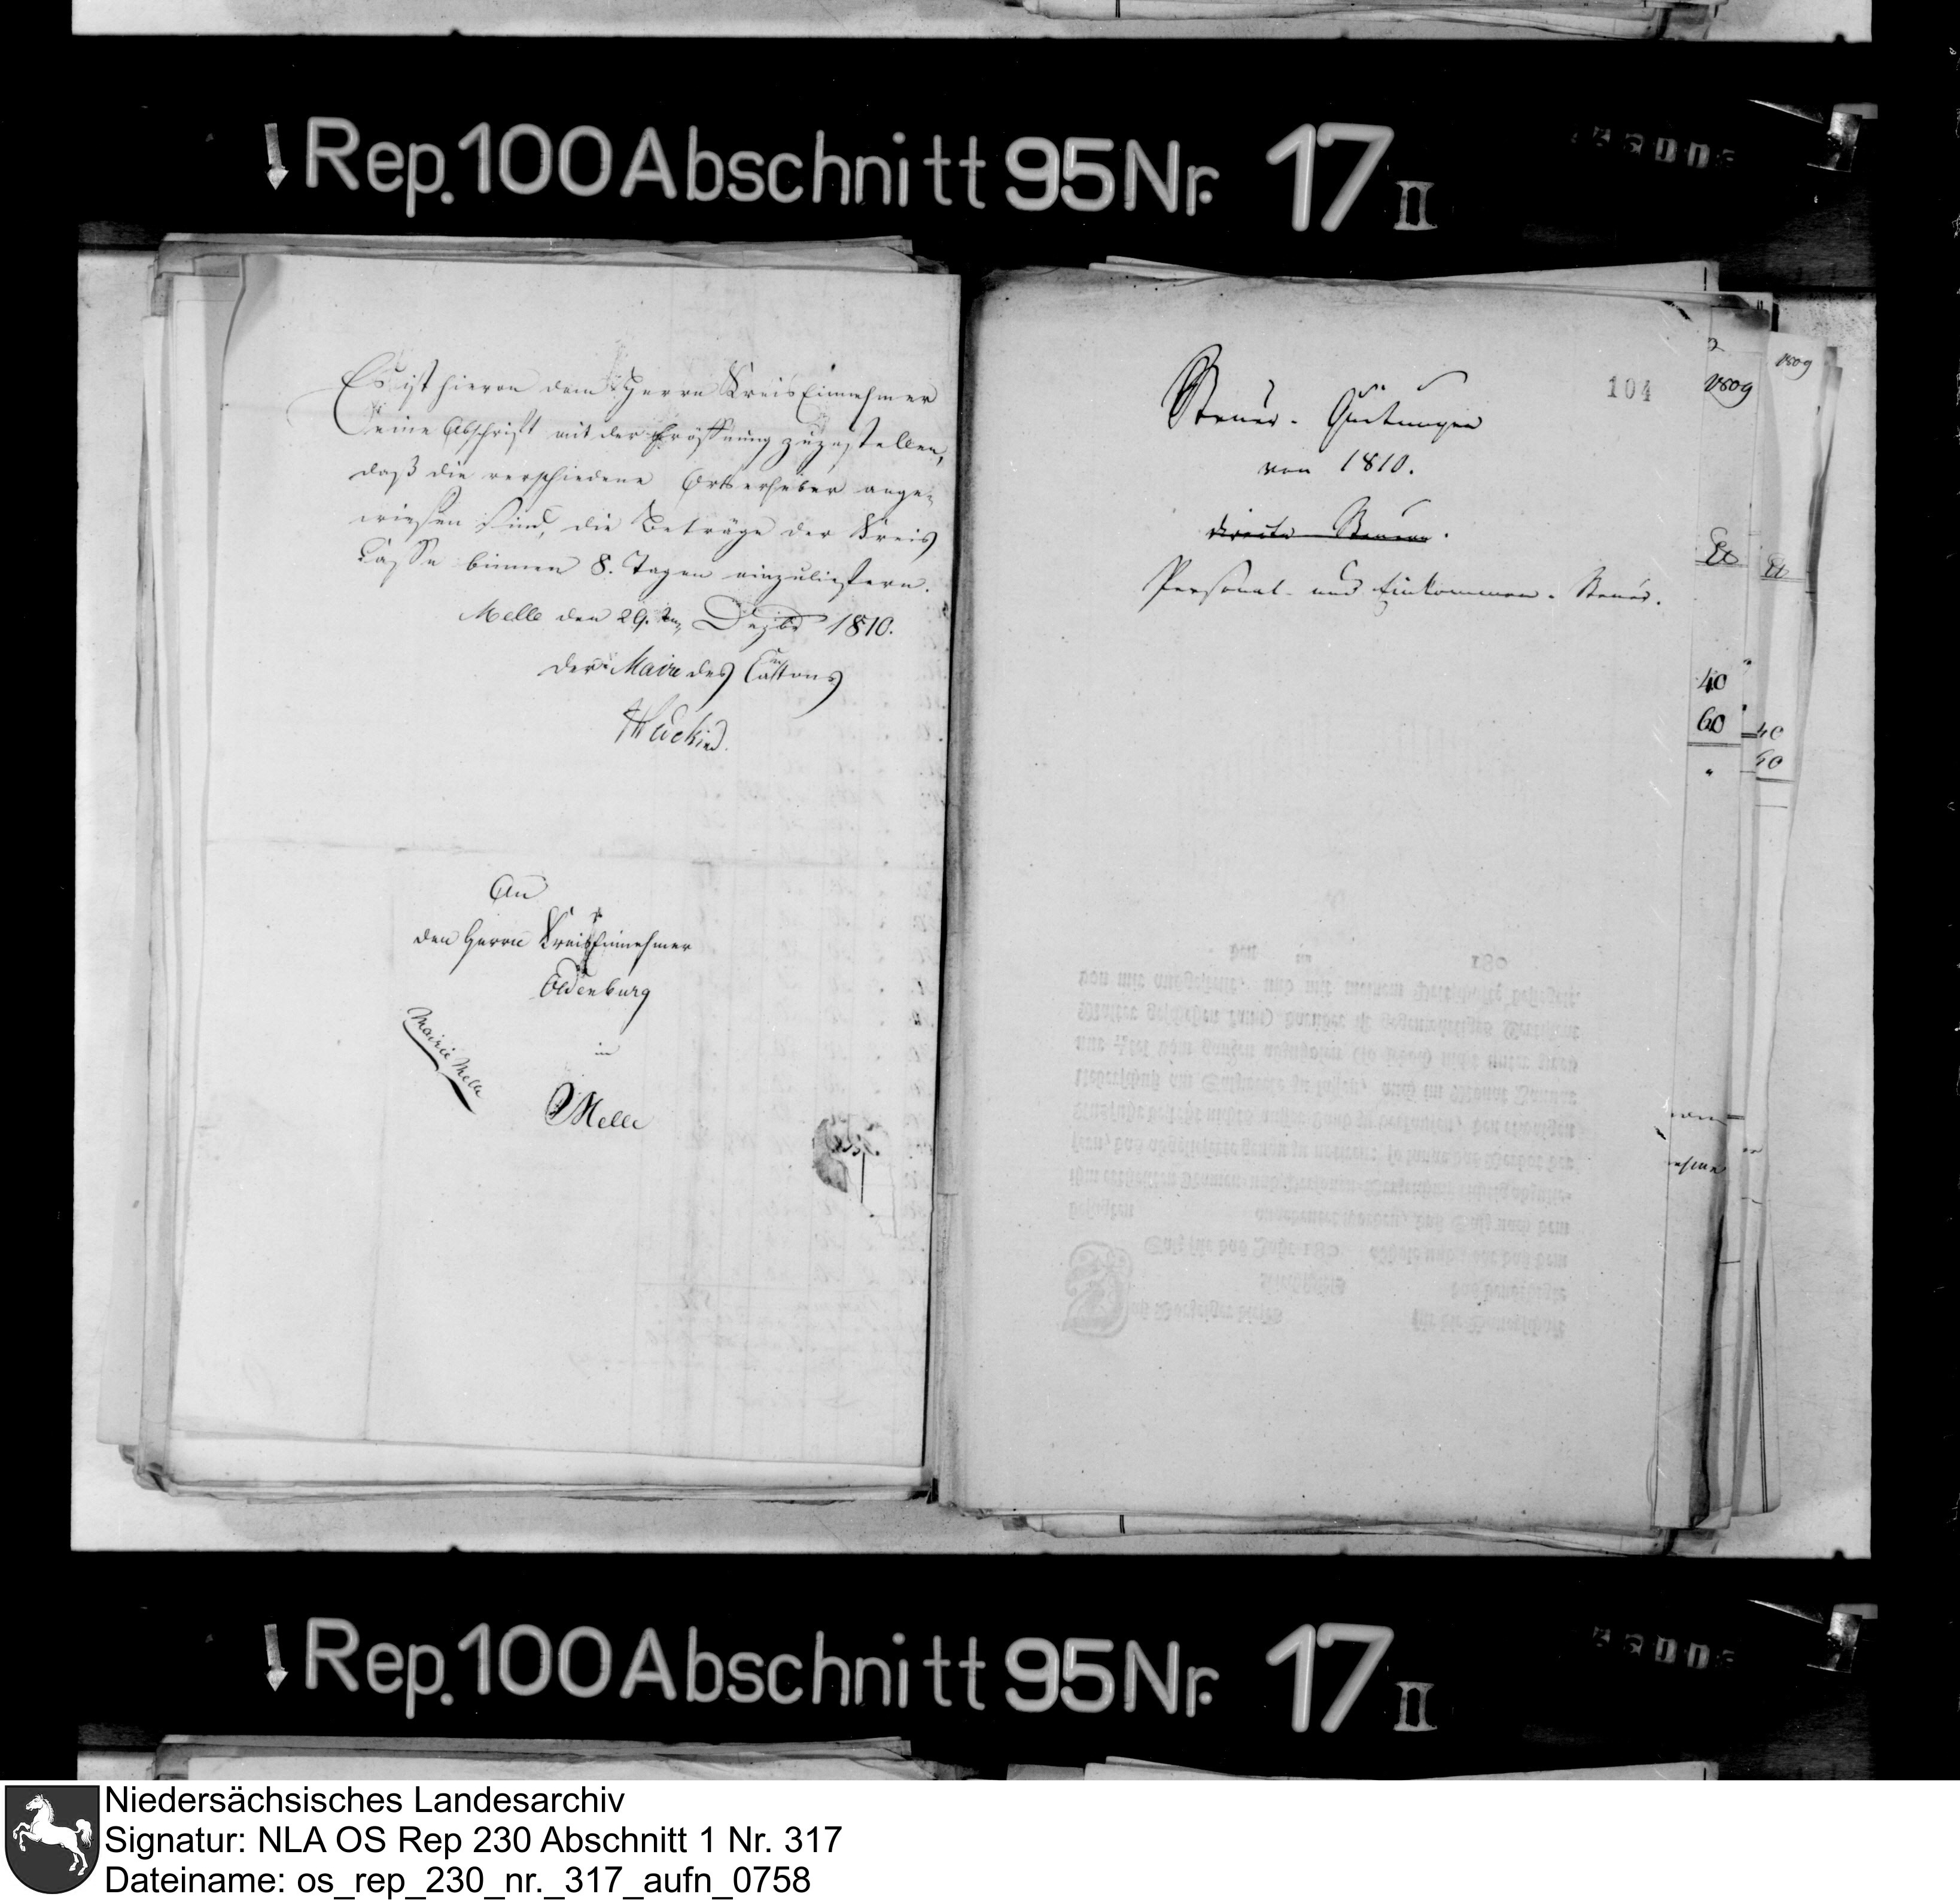 ↓ Rep. 100 Abschnitt 95 Nr. 17 II
Es ist hievon dem Herrn KreisEinnehmer
eine Abschrift mit der Eröffnung zuzustellen,
daß die verschiedene Ortserheber ange-
wiesen sind, die Beträge der Kreis
Casse binnen 8. Tagen einzuliefern.
Melle den 29. Dezbr 1810.
der Maire des Cantons
An
den Herrn KreisEinnehmer
Oldenburg
in
Melle
Mairie Melle
104
Steuer-Quitungen
von 1810.
directe Steuern.
Personal- und Einkommen-Steuer.
1809
1809
40
60
40
60
↓ Rep. 100 Abschnitt 95 Nr. 17 II
Niedersächsisches Landesarchiv
Signatur: NLA OS Rep 230 Abschnitt 1 Nr. 317
Dateiname: os_rep_230_nr._317_aufn_0758